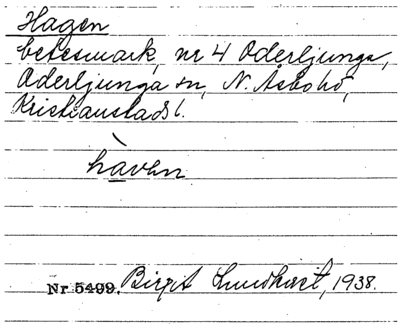 Hagen
betesmark, nr 4 Oderljunga,
Oderljunga sn, N. Åsbo hd,
Kristianstads l.
hàven
Nr 5499. Birgit Lundkvist, 1938.